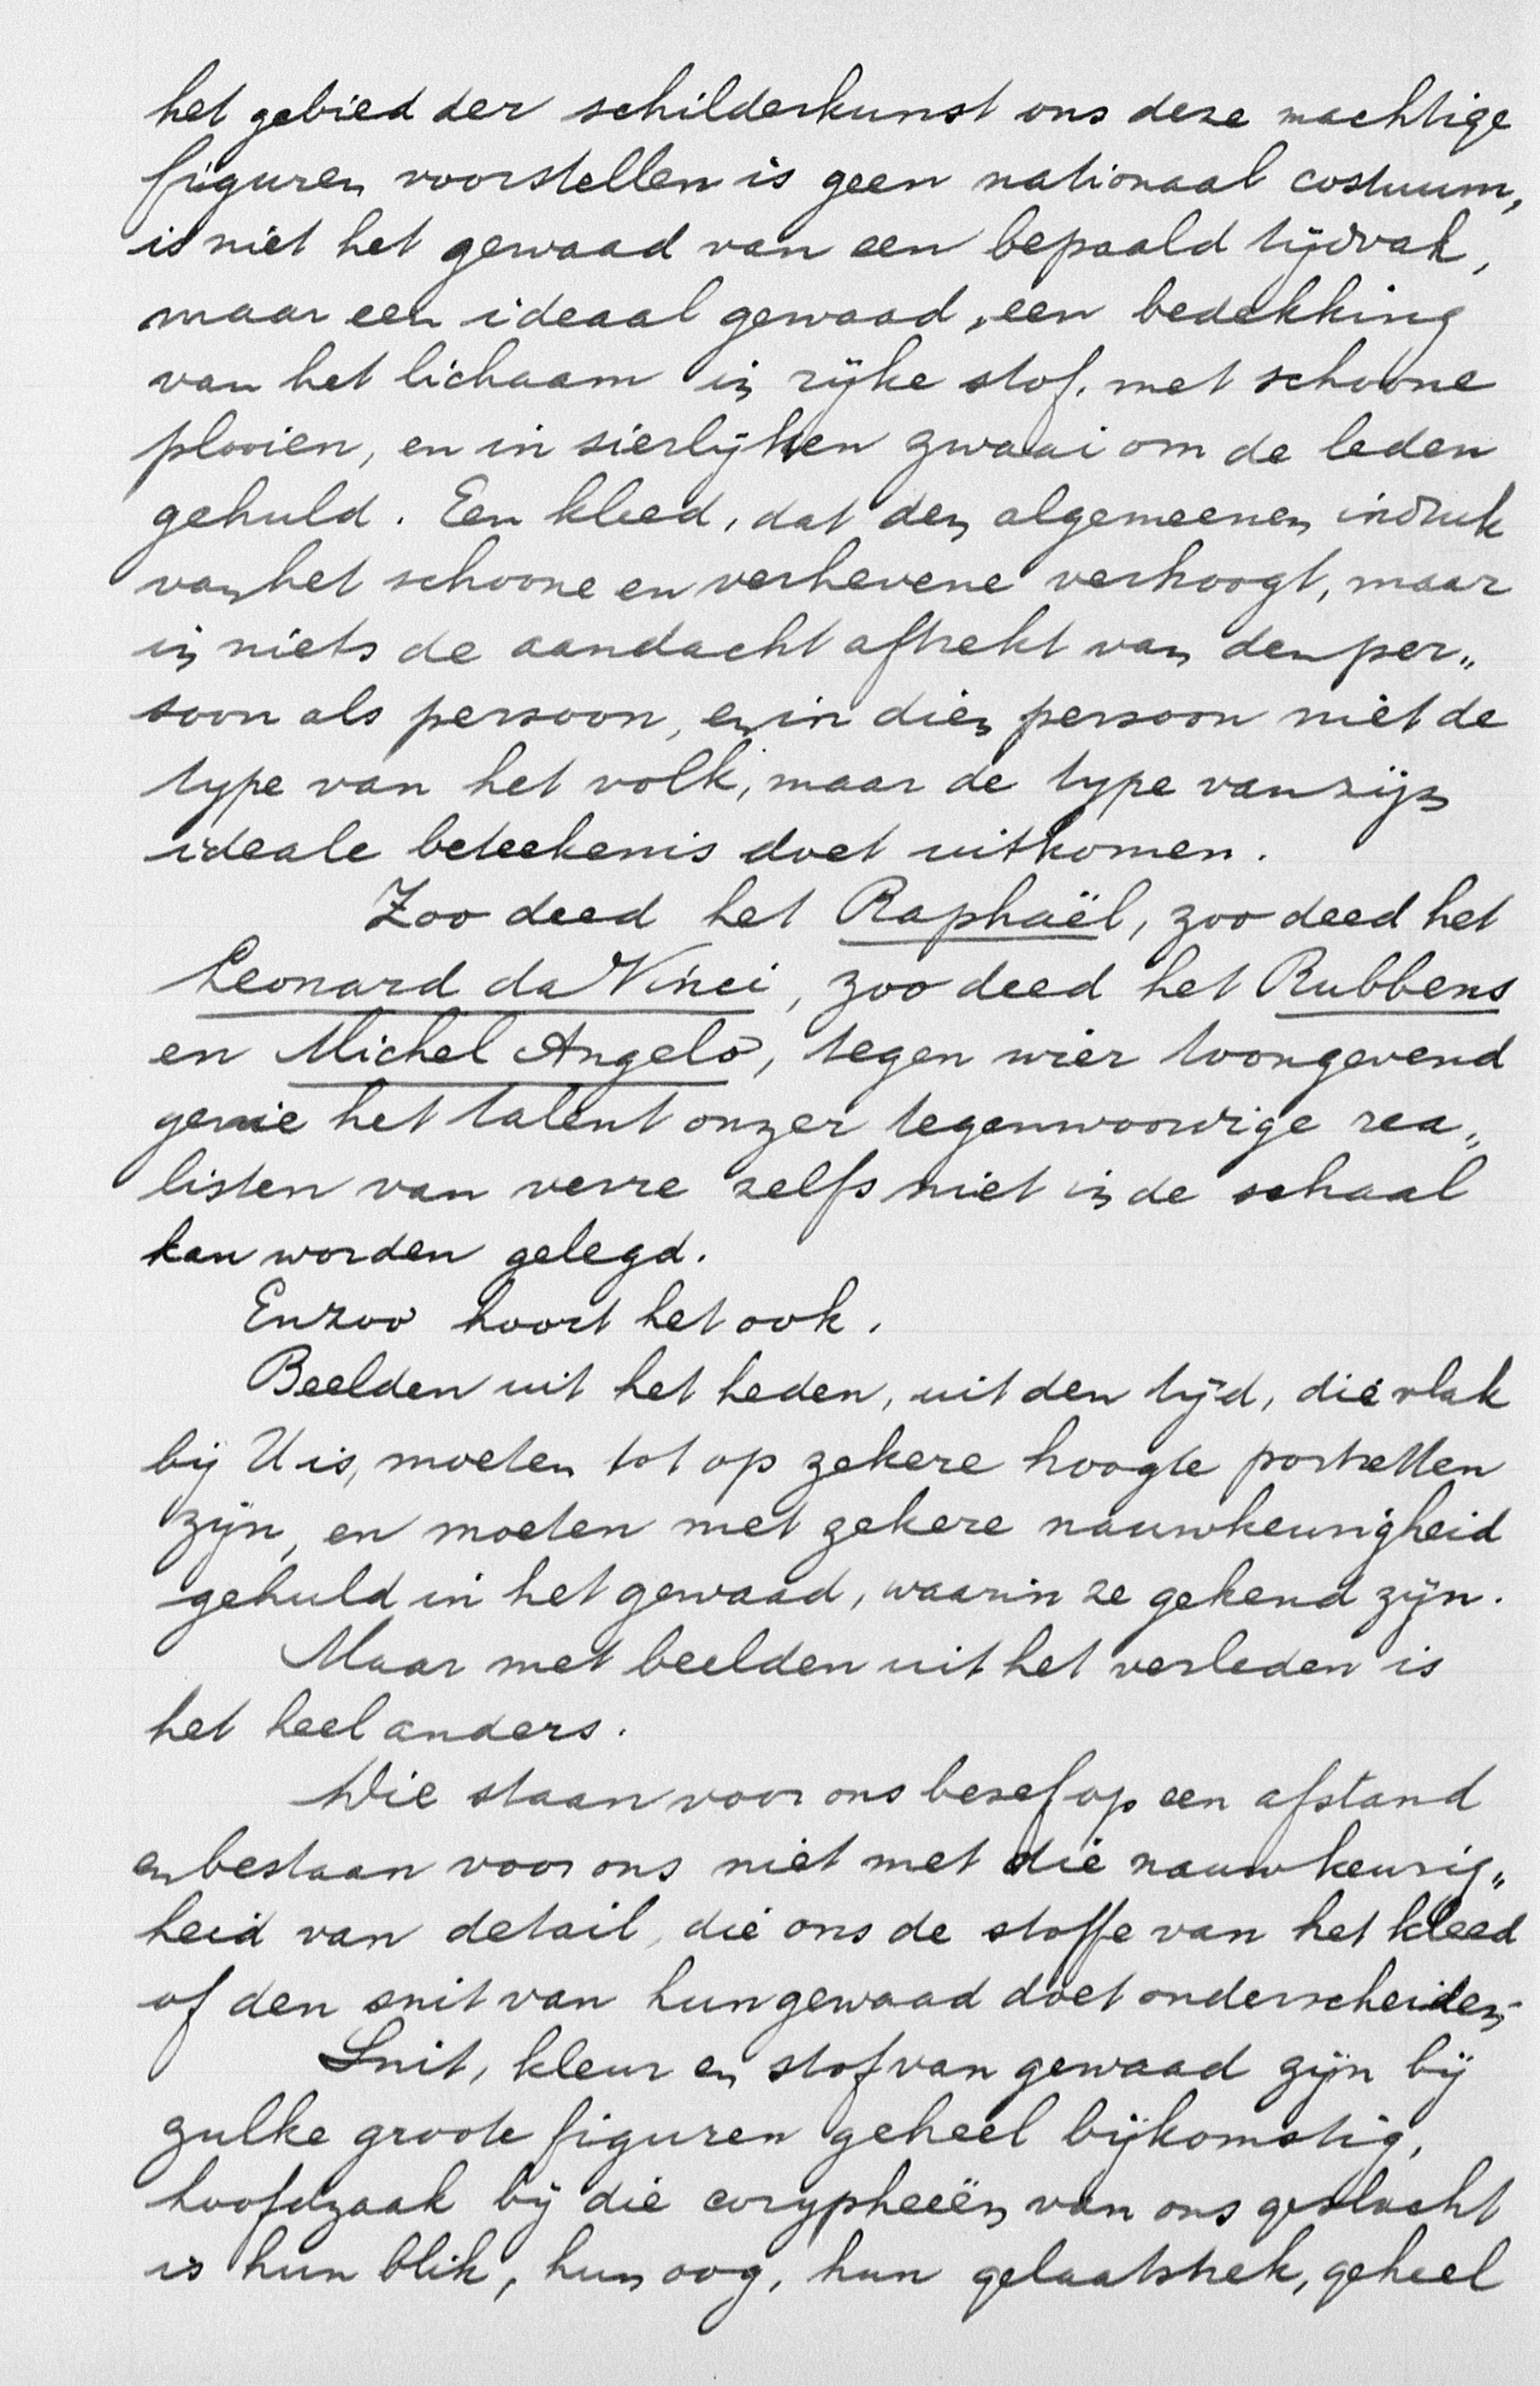 het gebied der schilderkunst ons deze machtige
figuren voorstellen is geen nationaal costuum,
is niet het gewaad van een bepaald tijdvak,
maar een ideaal gewaad, een bedekking
van het lichaam in rijke stof, met schoone
plooien, en in sierlijken zwaai om de leden
gehuld. Een kleed, dat den algemeenen indruk
van het schoone en verhevene verhoogt, maar
in niets de aandacht aftrekt van den per„
soon als persoon, en in dien persoon niet de
type van het volk, maar de type van zijn
ideale beteekenis doet uitkomen.
Zoo deed het Raphaël, zoo deed het
Leonard da Vinci, zoo deed het Rubbens
en Michel Angelo, tegen wier toongevend
genie het talent onzer tegenwoordige rea„
listen van verre zelfs niet in de schaal
kan worden gelegd.
En zoo hoort het ook.
Beelden uit het heden, uit den tijd, die vlak
bij U is, moeten tot op zekere hoogte portretten
zijn, en moeten met zekere nauwkeurigheid
gehuld in het gewaad, waarin ze gekend zijn.
Maar met beelden uit het verleden is
het heel anders.
Die staan voor ons besef op een afstand
en bestaan voor ons niet met die nauwkeurig„
heid van detail, die ons de stoffe van het kleed
of den snit van hun gewaad doet onderscheiden.
Snit, kleur en stof van gewaad zijn bij
zulke groote figuren geheel bijkomstig,
hoofdzaak bij die corypheeën van ons geslacht
is hun blik, hun oog, hun gelaatstrek, geheel